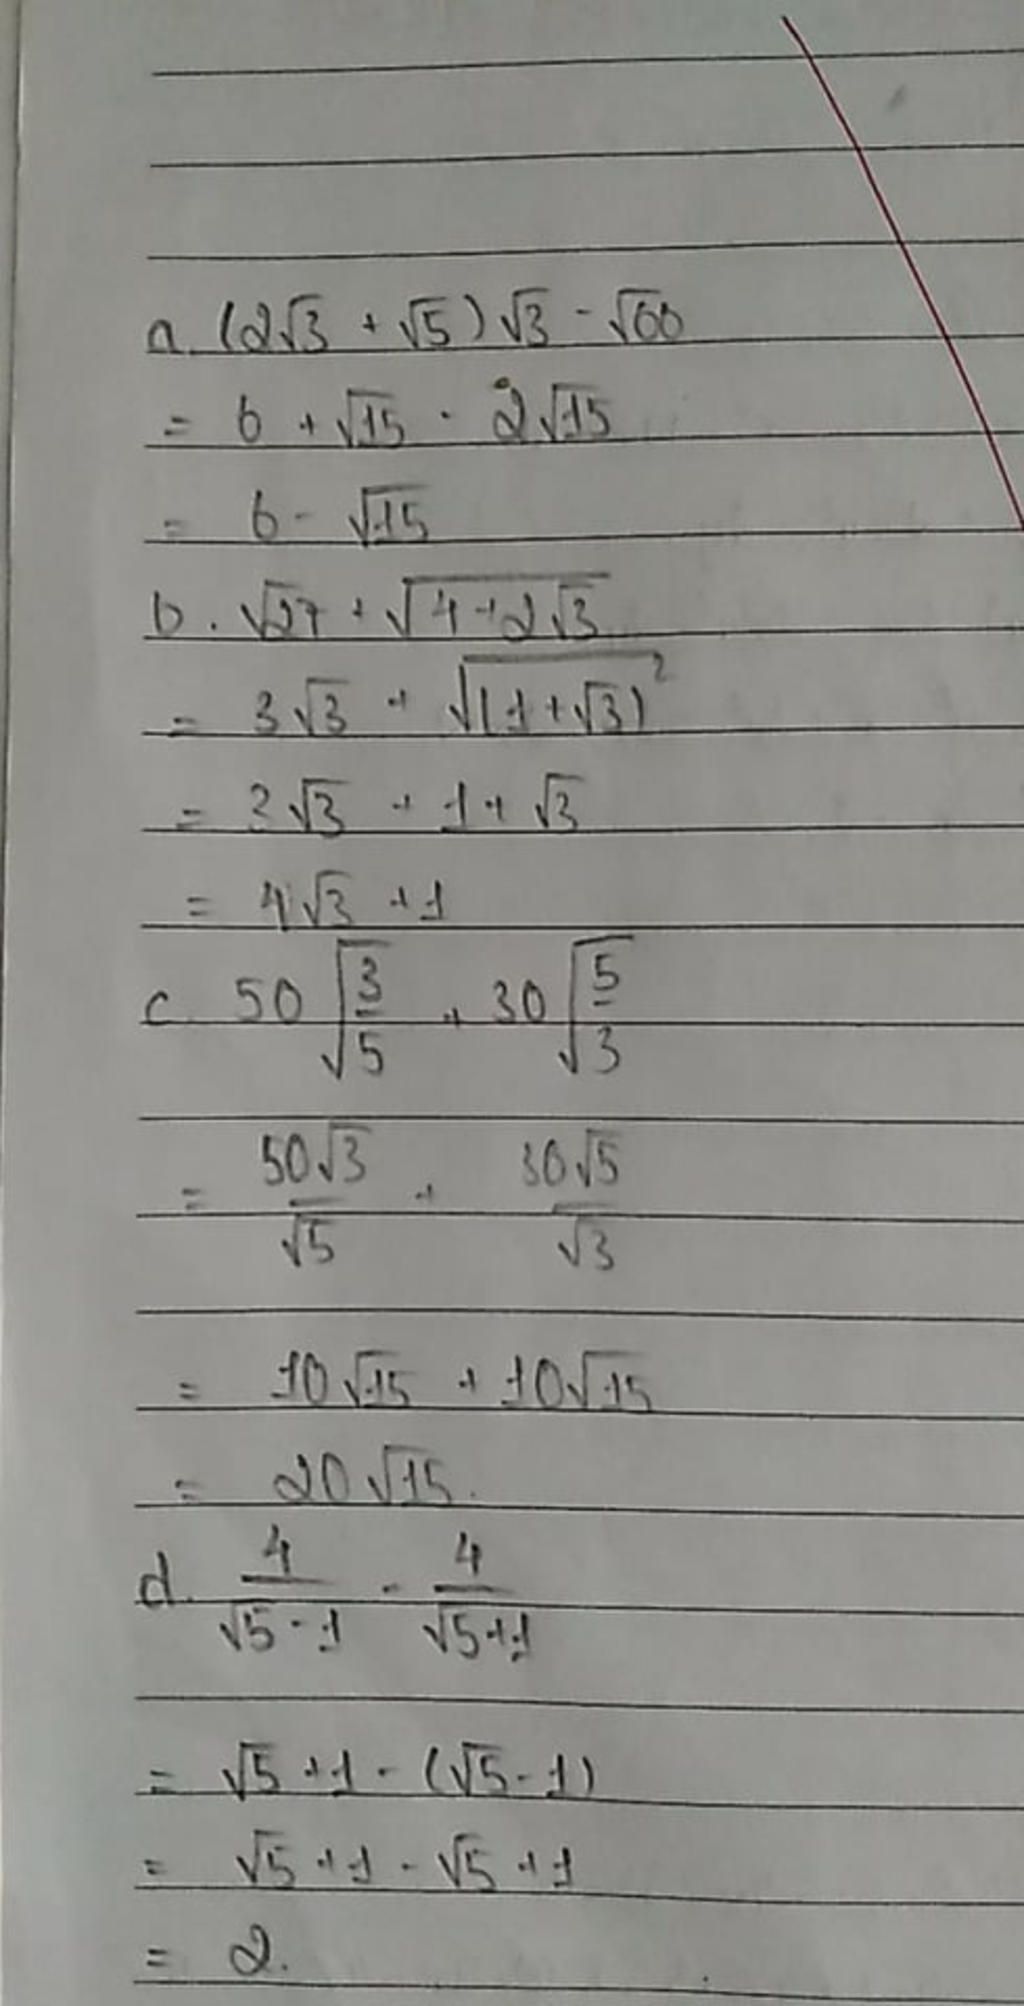 a. (2√3 + √5)√3 - √60
= 6 + √15 - 2√15
= 6 - √15
b. √27 + √(4+2√3)
= 3√3 + √((1+√3)²)
= 3√3 + 1 + √3
= 4√3 + 1
c. 50√(3/5) + 30√(5/3)
= 50√3/√5 + 30√5/√3
= 10√15 + 10√15
= 20√15.
d. 4/(√5-1) - 4/(√5+1)
= √5 + 1 - (√5-1)
= √5 + 1 - √5 + 1
= 2.